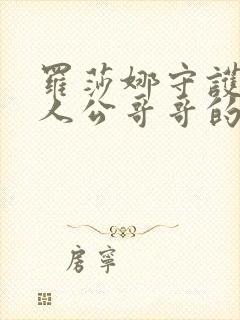 羅莎娜守護
人公哥哥的
房寧